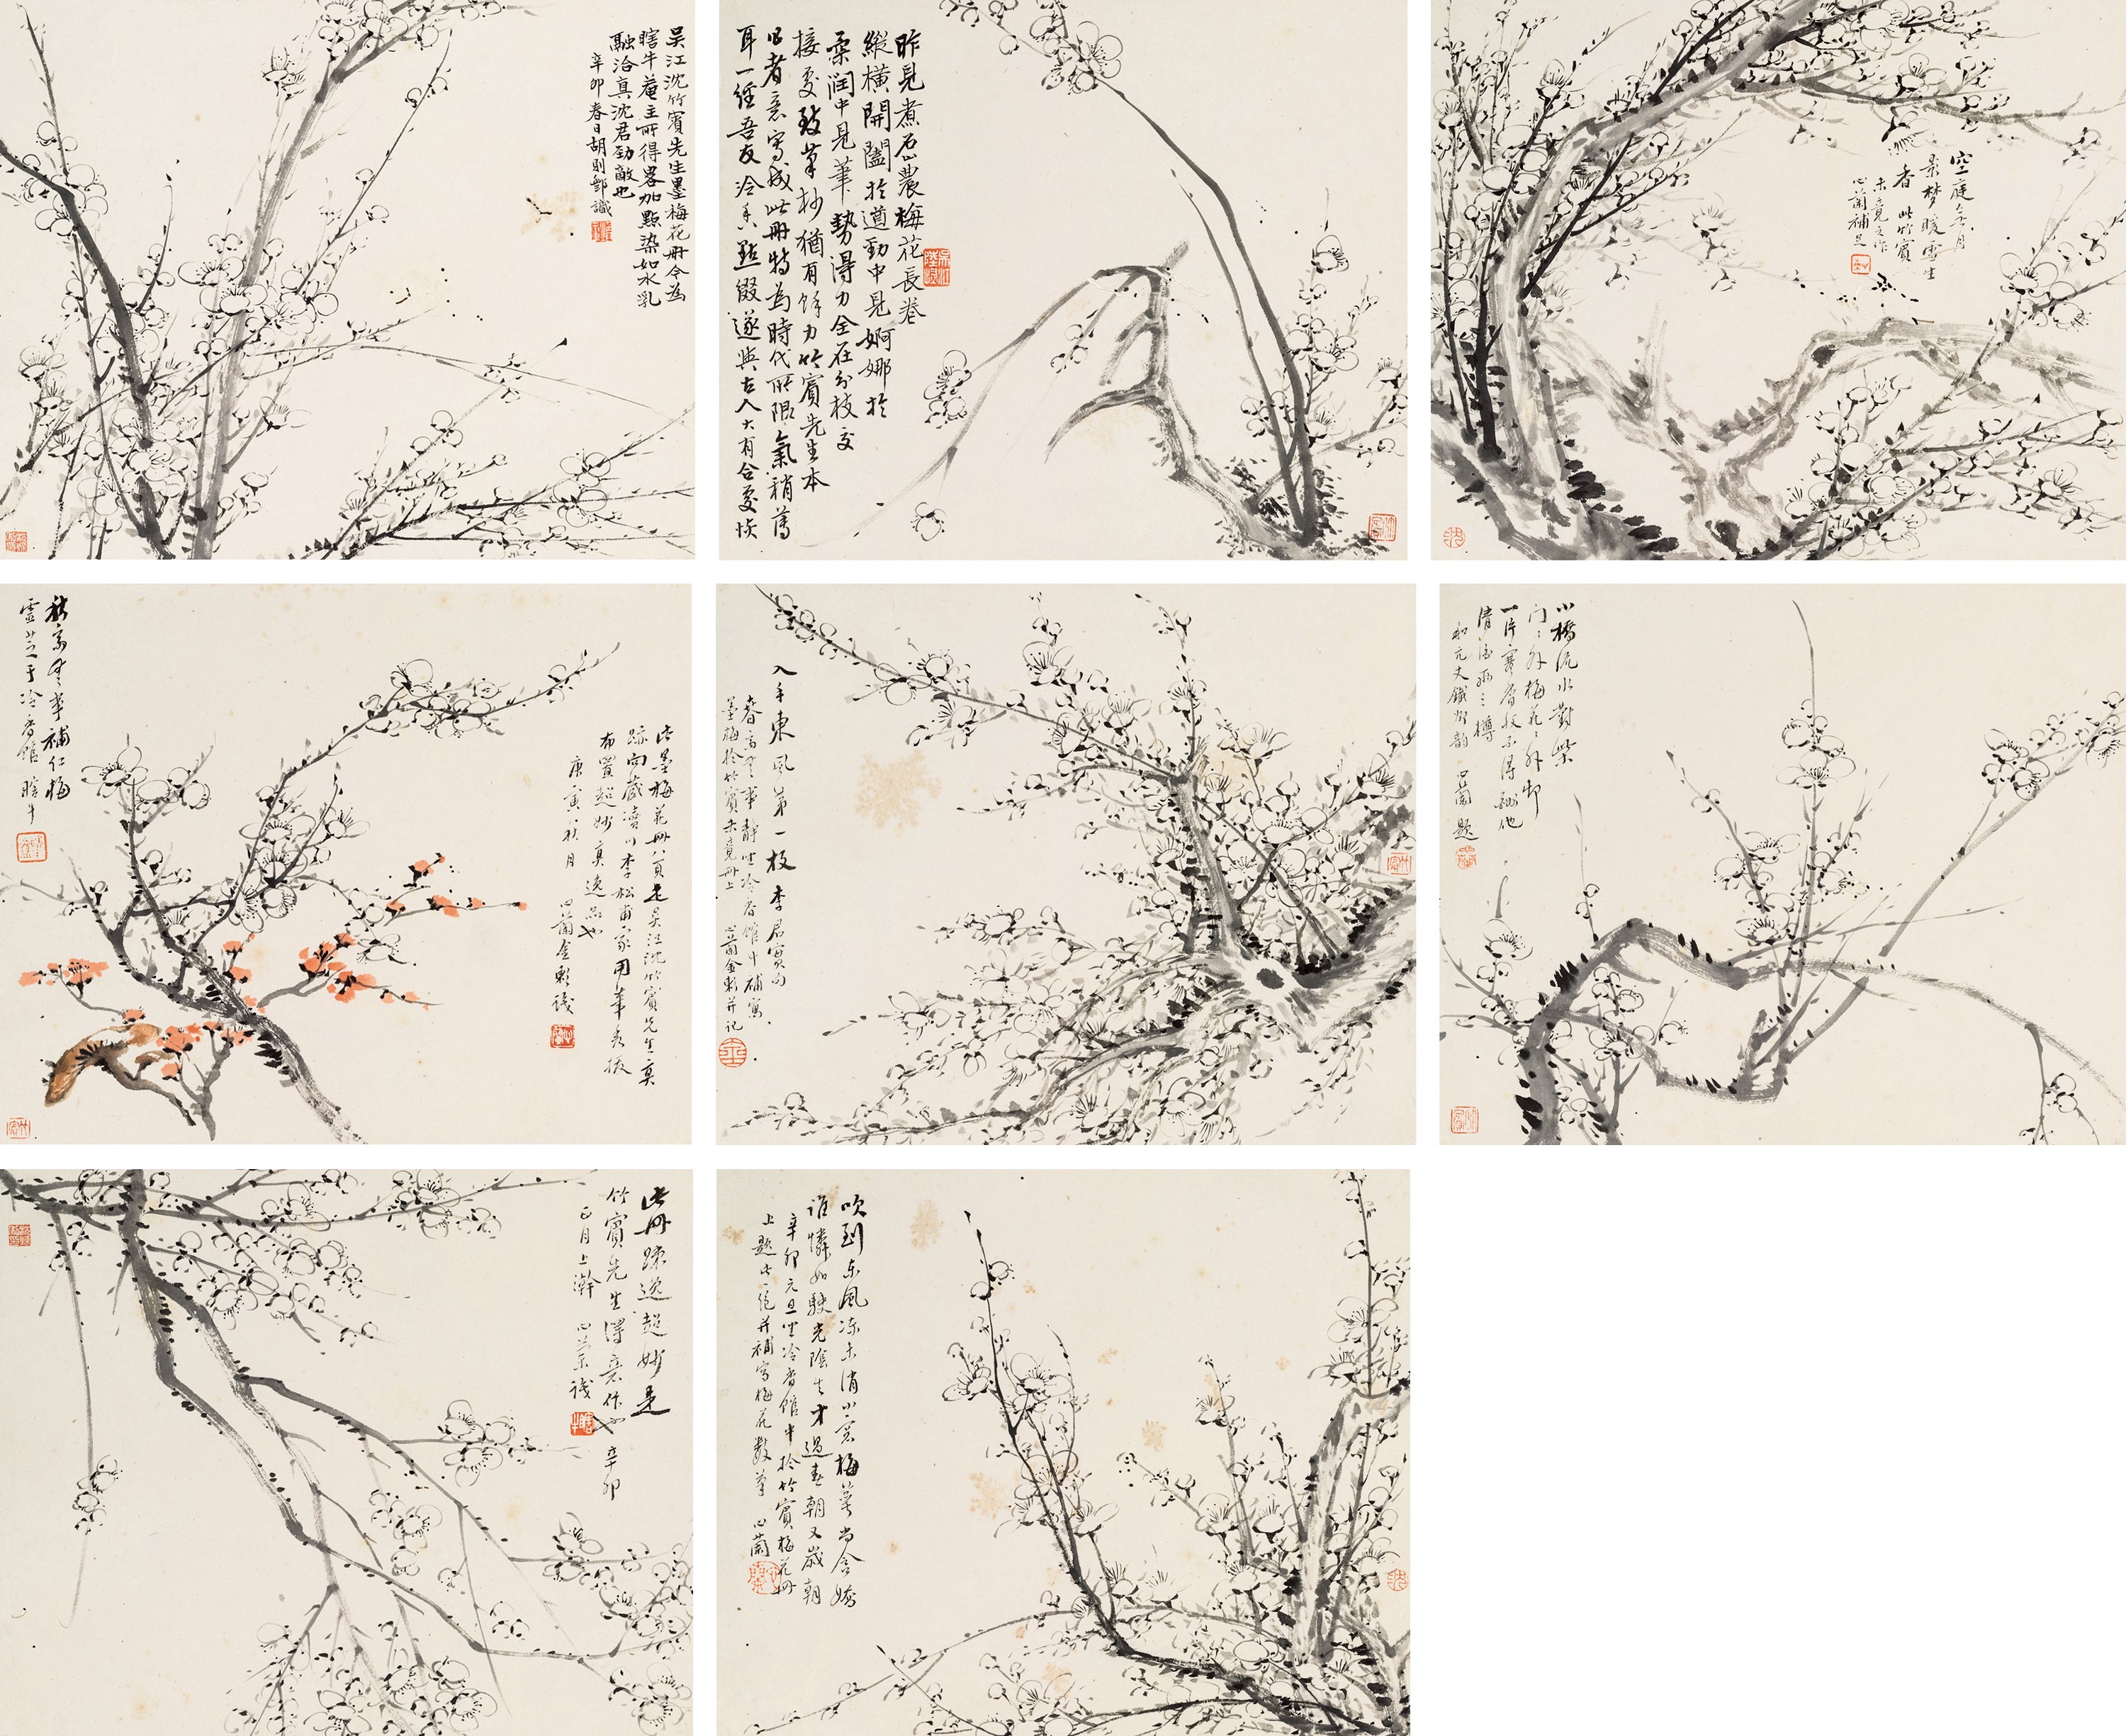 吳江沈竹賓先生墨梅花冊今為
瞎牛菴主所得畧加點染如水乳
融洽真沈君勁敵也
辛卯春日胡則鄞識
昨見煮石山農梅花長卷
縱橫開闔於遒勁中見婀娜於
柔潤中見筆勢得力全在分枝交
接處致筆杪猶有餘力竹賓先生本
此者意寫成此冊特為時代所限氣稍薄
耳一經吾友冷香點綴遂與古人大有合處快
空庭冷月
景梦暖雪生
香 此竹賓
未竟之作
心蘭補足
秋窗無事補仁梅
靈芝于冷香館 瞎牛
此墨梅花冊八頁是吳江沈竹賓先生真
跡向藏濱川李松甫家用筆秀拔
布置超妙真逸品也
庚寅八秋月 心蘭金彰識
入手東風第一枝 李居實句
春窗無事靜坐冷香館中補寫
墨梅於竹賓未竟冊上 心蘭金彰并記
小橋流水對柴
门门外梅花花外邨
一片寒香收不得 酬他
清酒兩三樽
和亢丈鐵邨韵 心蘭題
此冊疎逸超妙是
竹賓先生得意作也 辛卯
正月上澣 心蘭識
吹到东風冻未消小窗梅萼尚含嬌
谁憐如駛光陰去才過春朝又歲朝
辛卯元旦坐冷香館中於竹賓梅花冊
上題此一絕并補寫梅花數筆 心蘭